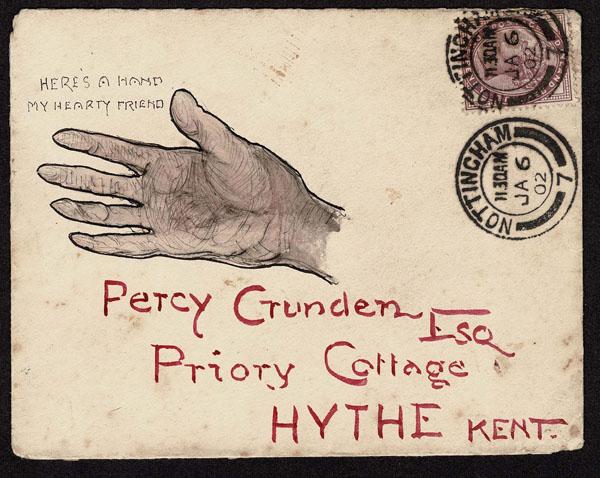 HERE'S A HAND
MY HEARTY FRIEND
NOTTINGHAM
11.30AM
JA 6
02
7
NOTTINGHAM
11.30AM
JA 6
02
7
Percy Crunden
Esq
Priory Cottage
HYTHE KENT.